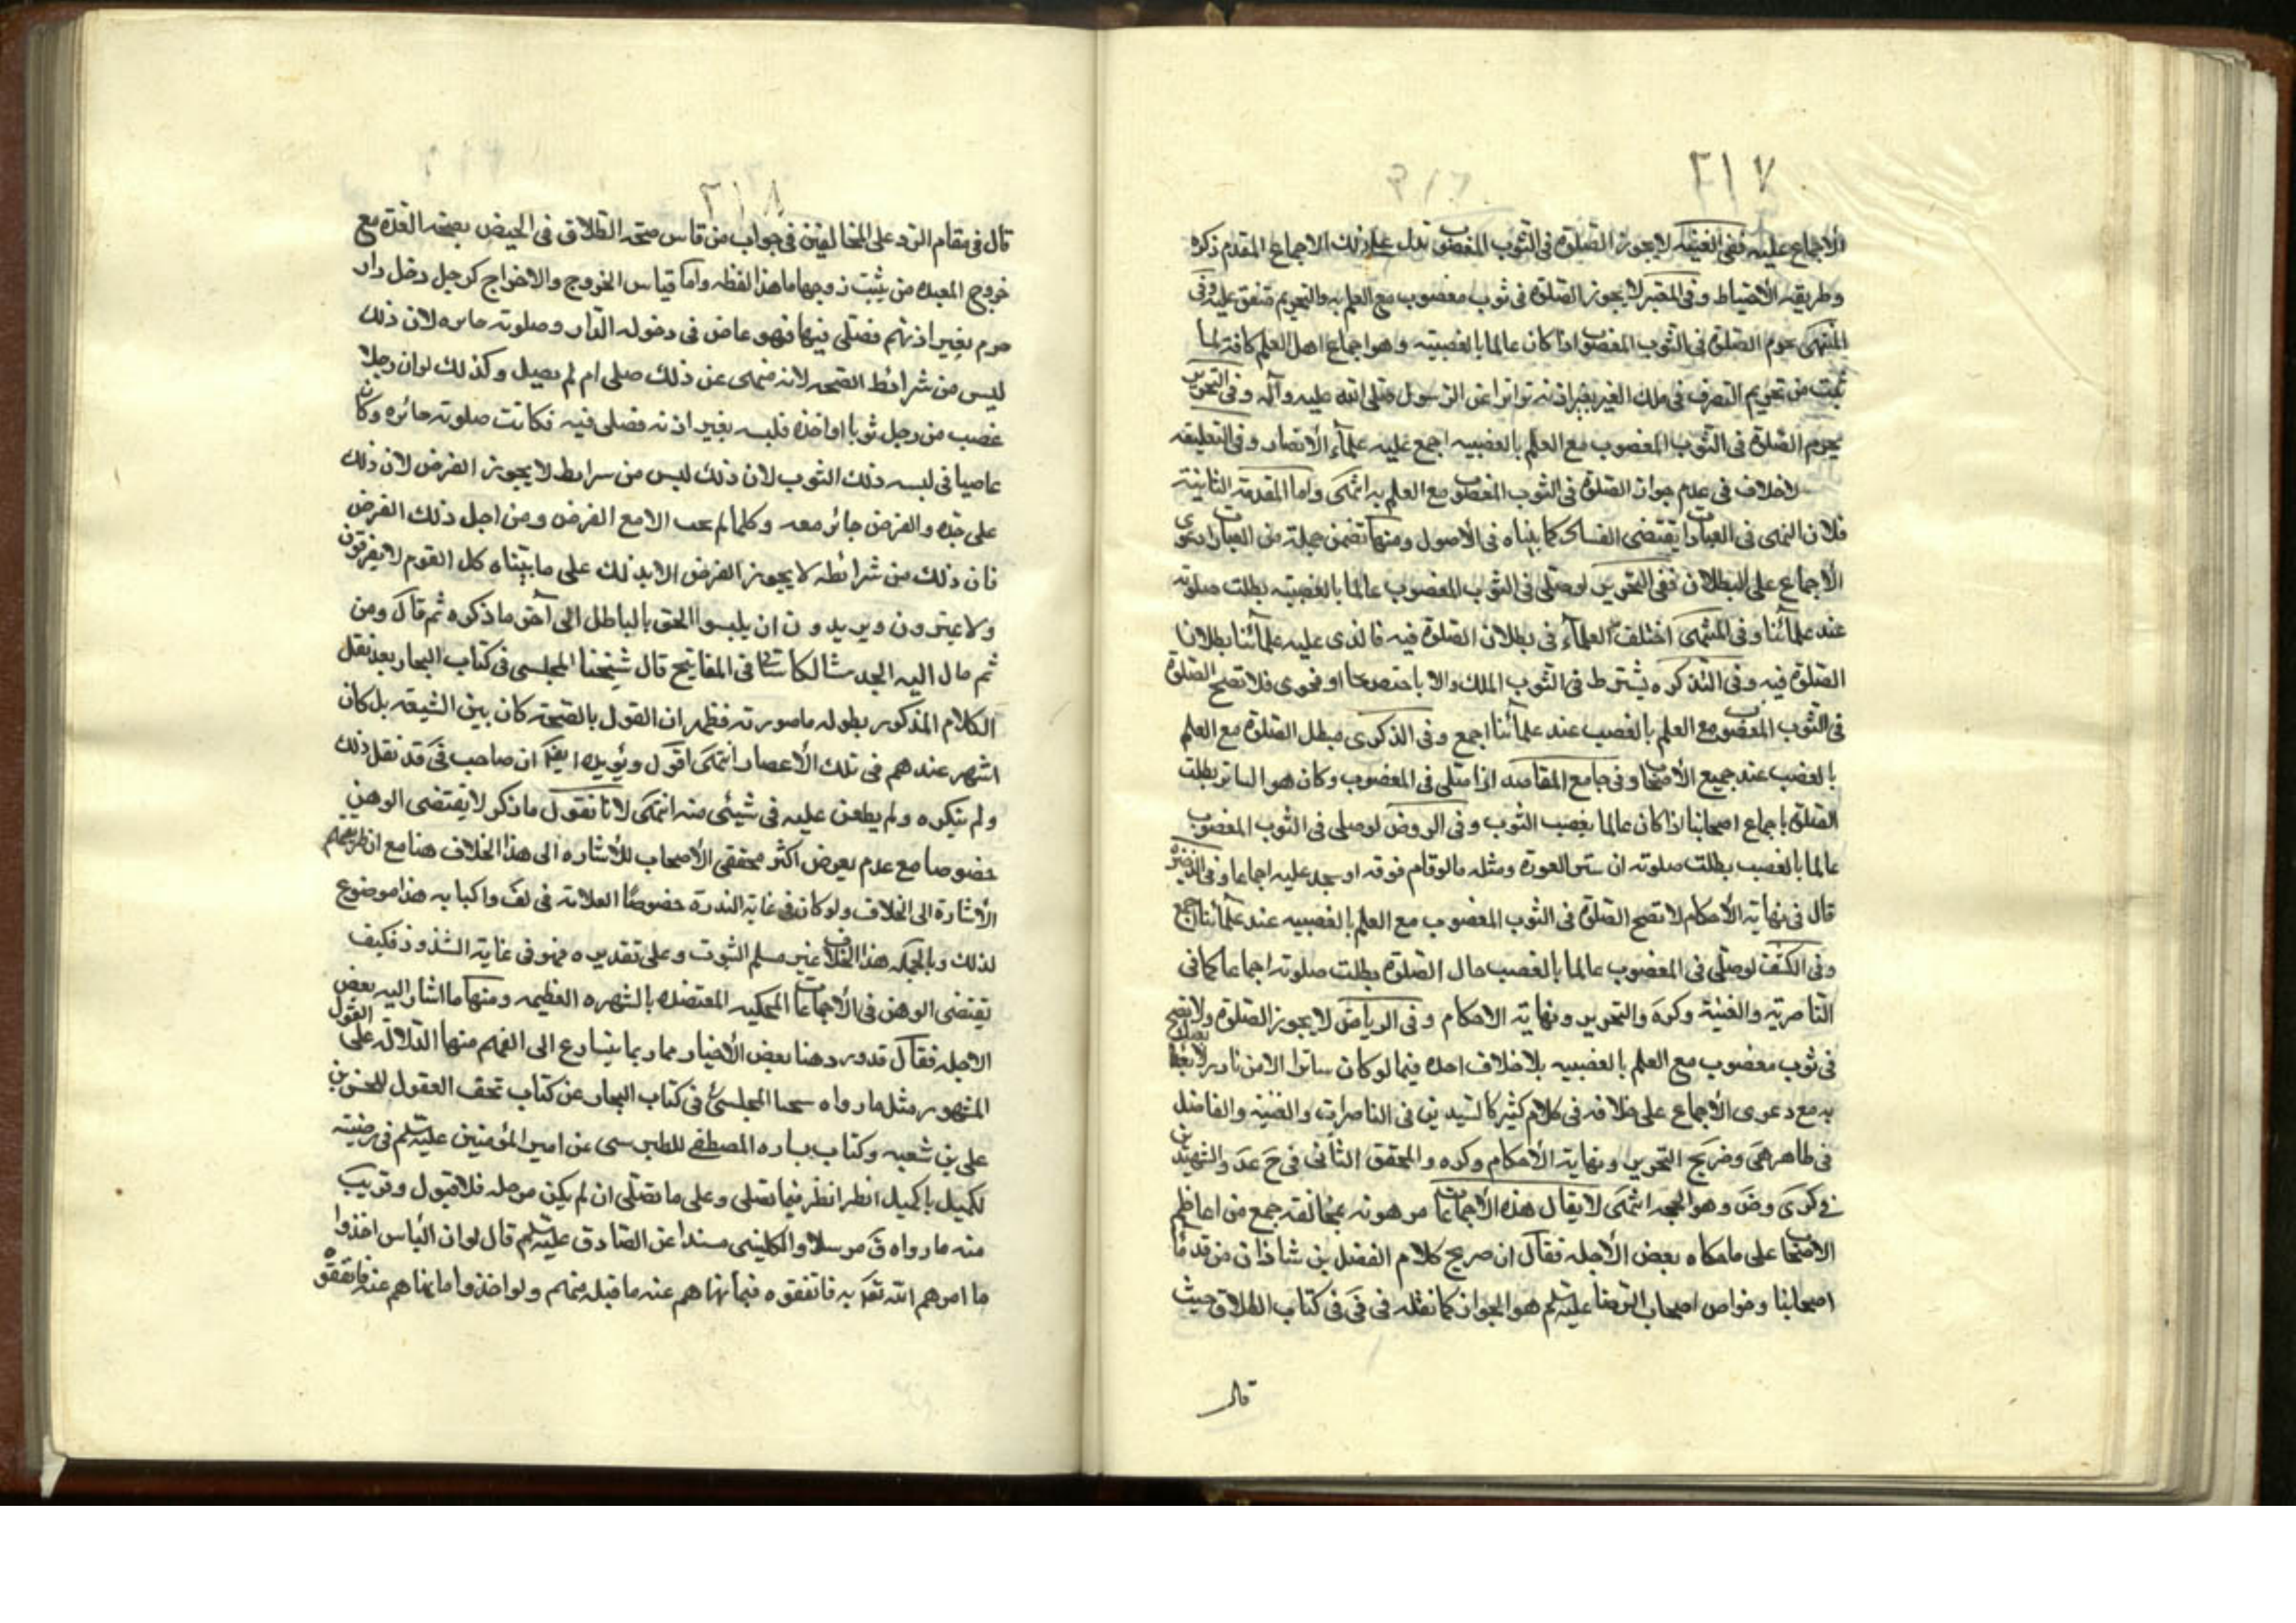 ٢١٧
الاجماع عليه ففى الغنيه لا يجوز الصلوة فى الثوب المغصوب تدل على ذلك الاجماع المقدم ذكره
وطريقه الاحتياط وفى المعتبر لا يجوز الصلوة فى ثوب مغصوب مع العلم به والتحريم متفق عليه وفى
المنتهى يحرم الصلوة فى الثوب المغصوب اذا كان عالما بالغصبيه وهو اجماع اهل العلم كافة لما
ثبت من تحريم التصرف فى ملك الغير بغير اذنه تواترا عن الرسول صلى الله عليه وآله وفى التحرير
يحرم الصلوة فى الثوب المغصوب مع العلم بالغصبيه اجمع عليه علماء الامصار وفى التعليقه
لا خلاف فى عدم جواز الصلوة فى الثوب المغصوب مع العلم به انتهى واما المقدمة الثانية
فلان النهى فى العبادات يقتضى الفساد كما بيناه فى الاصول ومنها تضمن جملة من العبارات دعوى
الاجماع على البطلان ففى التحرير لو صلى فى الثوب المغصوب عالما بالغصبيه بطلت صلوته
عند علمائنا وفى المنتهى اختلف العلماء فى بطلان الصلوة فيه فالذى عليه علمائنا بطلان
الصلوة فيه وفى التذكره يشترط فى الثوب الملك والاباحة صريحا او فحوى فلا تصح الصلوة
فى الثوب المغصوب مع العلم بالغصب عند علمائنا اجمع وفى الذكرى مبطل الصلوة مع العلم
بالغصب عند جميع الاصحاب وفى جامع المقاصد اذا صلى فى المغصوب وكان هو الساتر بطلت
الصلوة باجماع اصحابنا اذا كان عالما بغصب الثوب وفى الروض لو صلى فى الثوب المغصوب
عالما بالغصب بطلت صلوته ان ستر العورة ومثله ما لو قام فوقه او سجد عليه اجماعا وفى الذخيره
قال فى نهاية الاحكام لا تصح الصلوة فى الثوب المغصوب مع العلم بالغصبيه عند علمائنا اجمع
وفى الكشف لو صلى فى المغصوب عالما بالغصب حال الصلوة بطلت صلوته اجماعا كما فى
الناصرية والغنية وكره والتحرير ونهاية الاحكام وفى الرياض لا يجوز الصلوة ولا تصح
فى ثوب مغصوب مع العلم بالغصبيه بلا خلاف اجده فيما لو كان ساترا الا من نادر لا يعبأ
به مع دعوى الاجماع على خلافه فى كلام كثير كالسيدين فى الناصرات والغنيه والفاضل
فى ظاهر هى وصريح التحرير ونهاية الاحكام وكره والمحقق الثانى فى ح عد والشهيدين
فى كرى وض وهو الحجه انتهى لا يقال هذه الاجماعات موهونه بمخالفة جمع من اعاظم
الاصحاب على ما حكاه بعض الاجله فقال ان صريح كلام الفضل بن شاذان من قدماء
اصحابنا وخواص اصحاب الرضا عليه السلم هو الجواز كما نقله فى فى كتاب الطلاق حيث
قال
٢١٨
قال فى مقام الرد على المخالفين فى جواب من قاس صحة الطلاق فى الحيض بصحة العدة مع
خروج المعتدة من بيت زوجها ما هذا لفظه واما قياس الخروج والاخراج كرجل دخل دار
قوم بغير اذنهم فصلى فيها فهو عاص فى دخوله الدار وصلوته جائزه لان ذلك
ليس من شرائط الصحه لانه منهى عن ذلك صلى ام لم يصل وكذلك لو ان رجلا
غصب من رجل ثوبا او اخذه فلبسه بغير اذنه فصلى فيه فكانت صلوته جائزه وكان
عاصيا فى لبسه ذلك الثوب لان ذلك ليس من شرايط لا يجوز الفرض لان ذلك
على حده والفرض جائز معه وكلما لم يجب الا مع الفرض ومن اجل ذلك الفرض
فان ذلك من شرائطه لا يجوز الفرض الا بذلك على ما بيناه كل القوم لا يعرفون
ولا يميزون ويريدون ان يلبسوا الحق بالباطل الى آخر ما ذكره ثم قال ومن
ثم مال اليه المحدث الكاشانى فى المفاتيح قال شيخنا المجلسى فى كتاب البحار بعد نقل
الكلام المذكور بطوله ما صورته فظهر ان القول بالصحة كان بين الشيعة بل كان
اشهر عندهم فى تلك الاعصار انتهى اقول ويؤيده ايضا ان صاحب فى قد نقل ذلك
ولم ينكره ولم يطعن عليه فى شيئى منه انتهى لانا نقول ما ذكر لا يقتضى الوهن
خصوصا مع عدم تعرض اكثر محققى الاصحاب للاشاره الى هذا الخلاف هنا مع ان طريقتهم
الاشارة الى الخلاف ولو كان فى غاية الندرة خصوصا العلامة فى لف واكتابه هذا موضوع
لذلك وبالجمله هذا الخلاف غير مسلم الثبوت وعلى تقديره فهو فى غاية الشذوذ فكيف
يقتضى الوهن فى الاجماعات المحكيه المعتضده بالشهره العظيمه ومنها ما اشار اليه بعض
الاجله فقال قد ورد هنا بعض الاخبار مما ربما يتسارع الى الفهم منها الدلالة على القول
المشهور مثل ما رواه شيخنا المجلسى فى كتاب البحار عن كتاب تحف العقول للحسن بن
على بن شعبه وكتاب بشاره المصطفى للطبرسى عن امير المؤمنين عليه السلم فى وصيته
لكميل يا كميل انظر انظر فيما تصلى وعلى ما تصلى ان لم يكن من حله فلا قبول وقريب
منه ما رواه ق مرسلا والكلينى مسندا عن الصادق عليه السلم قال لو ان الناس اخذوا
ما امرهم الله تعالى به فانفقوه فيما نهاهم عنه ما قبله منهم ولو اخذوا ما نهاهم عنه فانفقوه